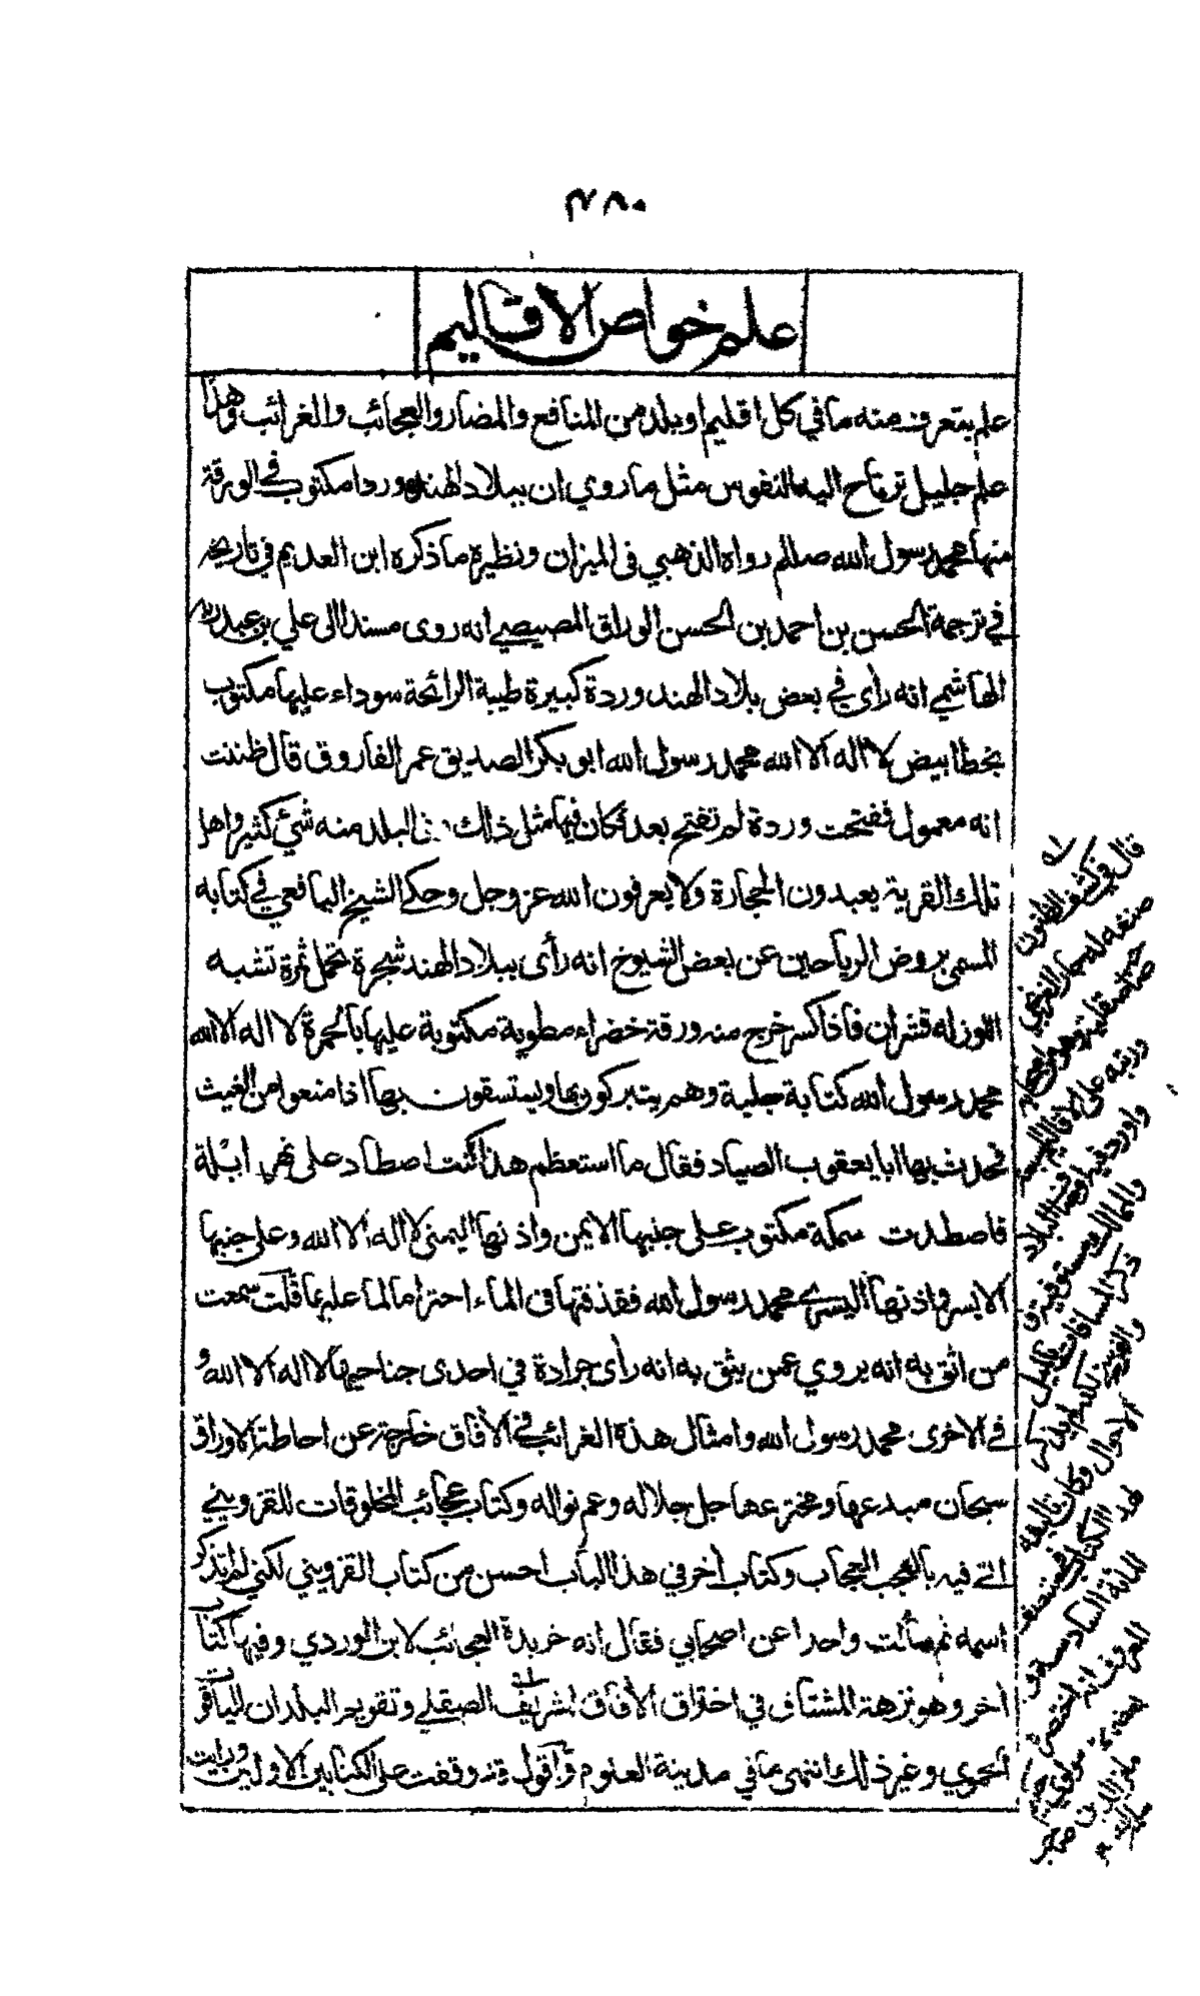 ٤٨٠
علم خواص الاقاليم
علم يتعرف منه ما في كل اقليم او بلد من المنافع والمضار والعجائب والغرائب وهذا
علم جليل ترتاح اليه النفوس مثل ما روي ان ببلاد الهند وردا مكتوب في الورقة
منها محمد رسول الله صللم رواه الذهبي في الميزان ونظيره ما ذكره ابن العديم في تاريخه
في ترجمة الحسن بن احمد بن الحسن الوراق المصيصي انه روى مسندا الى علي بن عبد الله
الهاشمي انه رأى في بعض بلاد الهند وردة كبيرة طيبة الرائحة سوداء عليها مكتوب
بخط ابيض لا اله الا الله محمد رسول الله ابو بكر الصديق عمر الفاروق قال ظننت
انه معمول ففتحت وردة لم تفتح بعد فكان فيها مثل ذلك في البلد منه شئ كثير واهل
تلك القرية يعبدون الحجارة ولا يعرفون الله عز وجل وحكى الشيخ اليافعي في كتابه
المسمى بروض الرياحين عن بعض الشيوخ انه رأى ببلاد الهند شجرة تحمل ثمرة تشبه
اللوز له قشران فاذا كسر خرج منه ورقة خضراء مطوية مكتوبة عليها بالحمرة لا اله الا الله
محمد رسول الله كتابة جلية وهم يتبركون بها ويستسقون بها اذا منعوا من الغيث
فحدث بها ابا يعقوب الصياد فقال ما استعظم هذا كنت اصطاد على نهر ابلة
فاصطدت سمكة مكتوب على جنبها الايمن واذنها اليمنى لا اله الا الله وعلى جنبها
الايسر واذنها اليسرى محمد رسول الله فقذفتها في الماء احتراما لما عليها قلت سمعت
من اثق به انه يروي عمن يثق به انه رأى جرادة في احدى جناحيها لا اله الا الله و
في الاخرى محمد رسول الله وامثال هذه الغرائب في الآفاق خارجة عن احاطة الاوراق
سبحان مبدعها ومخترعها جل جلاله وعم نواله وكتاب عجائب المخلوقات للقزويني
اتى فيه بالعجب العجاب وكتاب آخر في هذا الباب احسن من كتاب القزويني لكني لم اتذكر
اسمه ثم سألت واحدا عن اصحابي فقال انه خريدة العجائب لابن الوردي وفيها كتاب
آخر وهو نزهة المشتاق في اختراق الآفاق لشريف الصقلي وتقويم البلدان لياقوت
الحموي وغير ذلك انتهى ما في مدينة العلوم واقول قد وقفت على الكتابين الاولين ورايت
قال في كشف الظنون
ورتبه على الاقاليم السبعة
واورد فيه اوصاف البلاد
والممالك مستوفية
ذكر المسافات بالميل
والفرسخ
الاحوال وكان تاليفه
لهذا الكتاب في منتصف
المائة السادسة